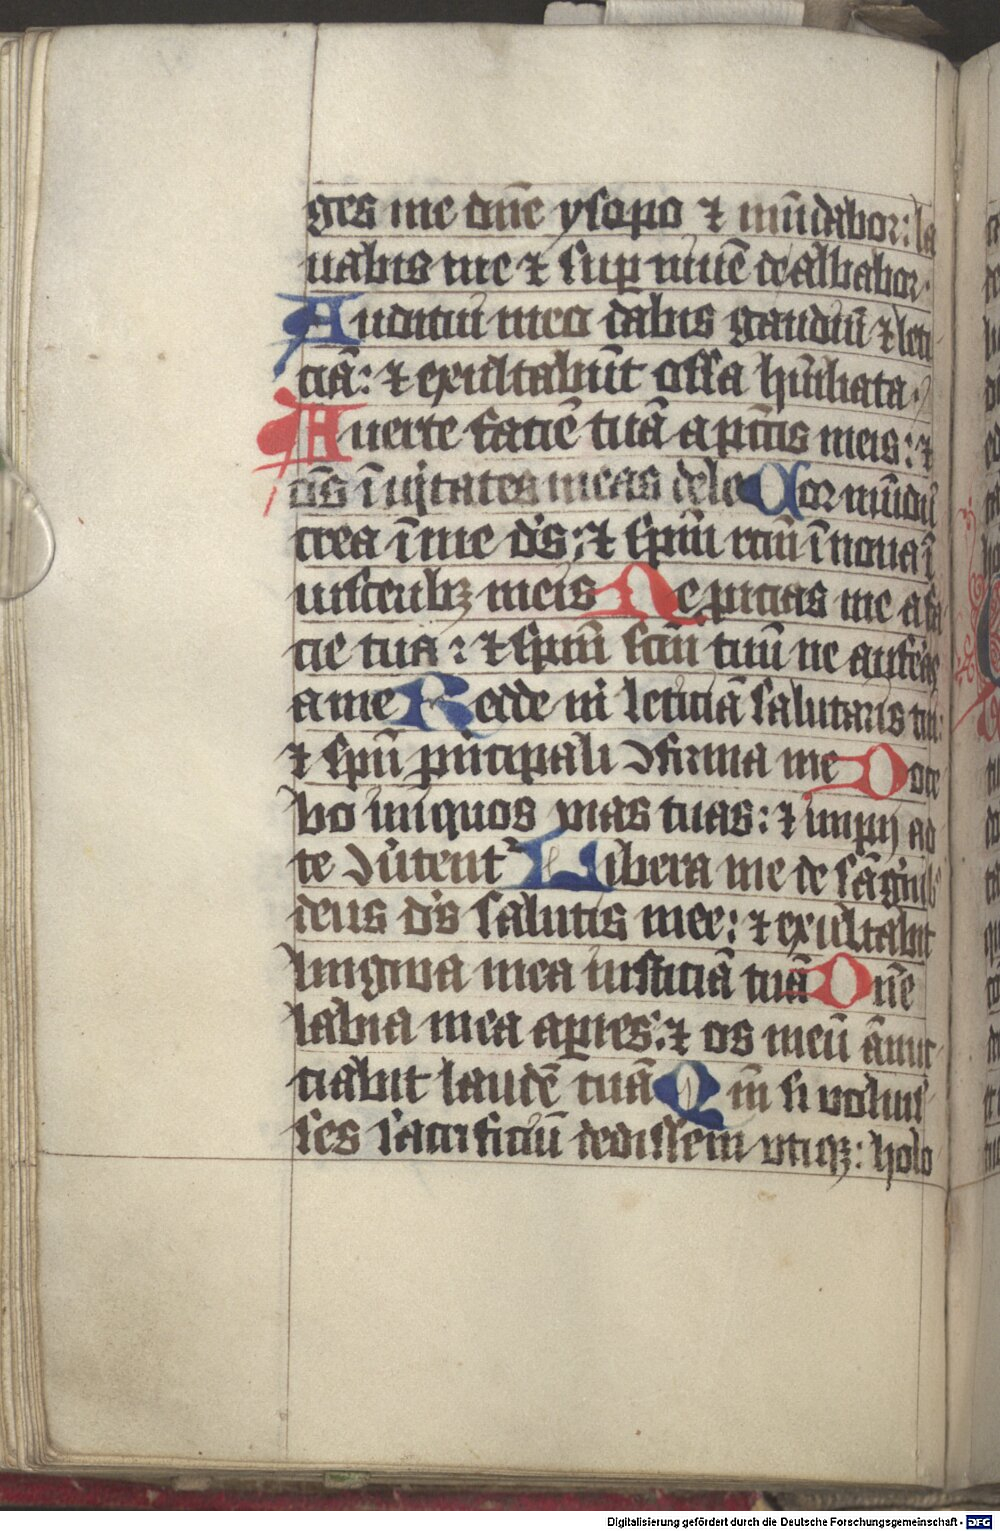 ges me dn̄e ysopo ⁊ mūdabor: la
uabis me ⁊ sup niuē dealbabor.
Auditui meo dabis gaudiū ⁊ leti
ciā: ⁊ exultabūt ossa hūiliata.
Auerte faciē tuā a pctīs meis: ⁊
oēs īiqitates meas dele Cor mūdū
crea ī me ds: ⁊ spm̄ rcm̄ īnoua ī
uisceribꝫ meis Ne picias me a fa
cie tua: ⁊ spm̄ scm̄ tuū ne auferas
a me Redde m̄ leticiā salutaris tui:
⁊ spū pncipali ꝯfirma me Doce
bo iniquos vias tuas: ⁊ impij ad
te ꝯuertent Libera me de sāguīibꝰ
deus ds salutis mee: ⁊ exultabit
lingwa mea iusticiā tuā Dn̄e
labia mea apies: ⁊ os meū ānuc
ciabit laudē tuā Qm̄ si voluis
ses sacrificiū dedissem vtiqꝫ: holo
Digitalisierung gefördert durch die Deutsche Forschungsgemeinschaft - DFG